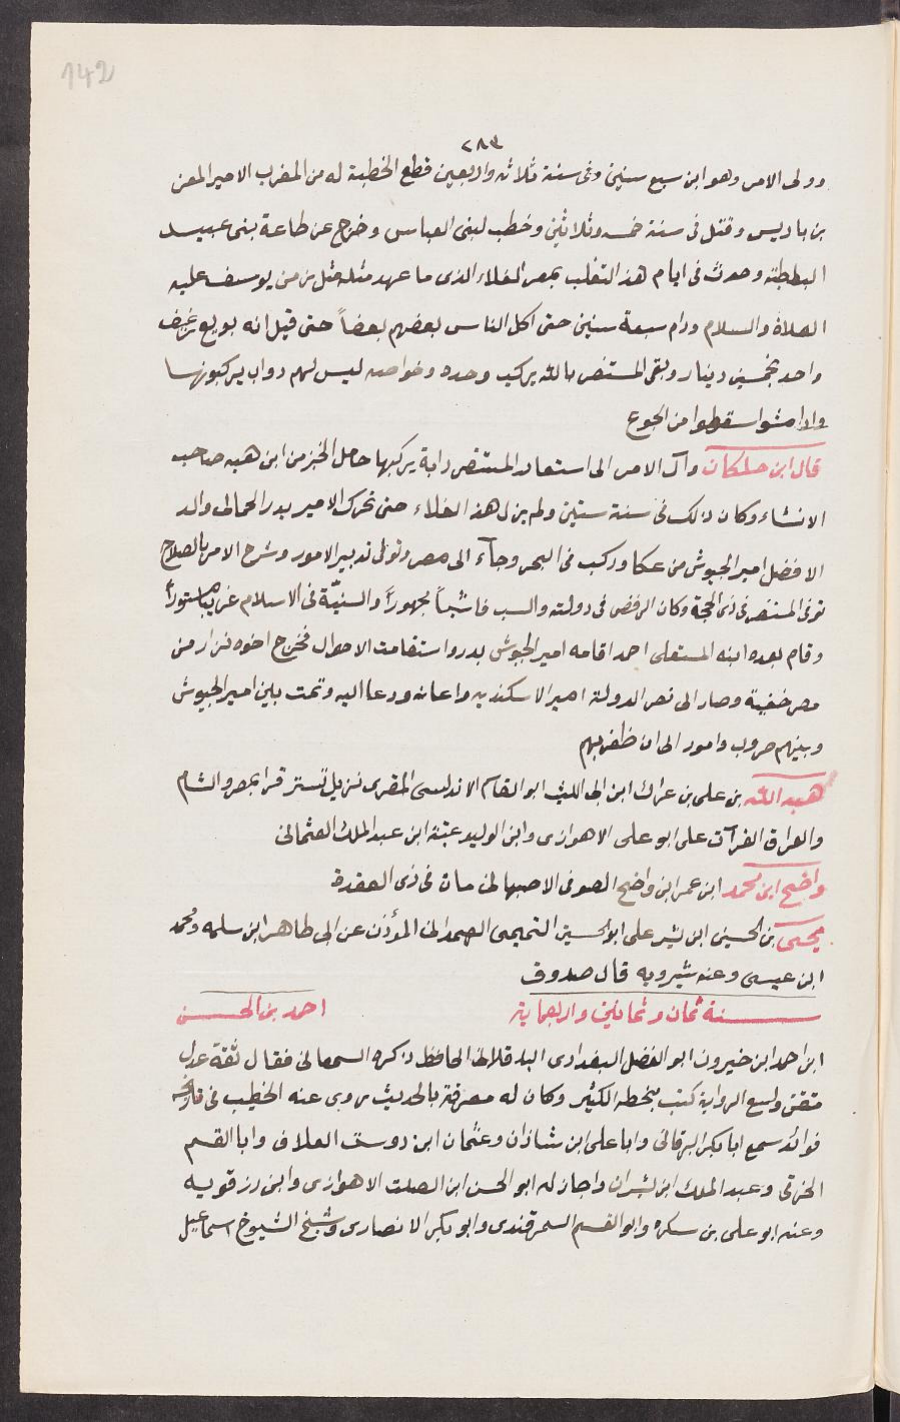 142
٢٨٣
وولى الامر وهو ابن سبع سنين وفى سنة ثلاثه واربعين قطع الخطبة له من المغرب الامير المعز
بن باديس وقتل فى سنة خمسه وثلاثين وخطب لبنى العباس وخرج عن طاعة بنى عبيد
الب‍ وحدث فى ايام هذا التغلب بمصر الغلاء الذى ما عهد مثله مثل من زمن يوسف عليه
الصلاة والسلام ودام سبعة سنين حتى اكل الناس بعضهم بعضاً حتى قيل انه بويع رغيف
واحد بخمسين دينار وبقى المستنصر بالله يركب وحده وخواصه ليس لهم دواب يركبونها
واذا مشوا سقطوا من الجوع
قال ابن خلكان وآل الامر الى استعار المستنصر دابة يركبها حامل الخبز من ابن هبه صاحب
الانشاء وكان ذلك فى سنة ستين ولم يزل هذا الغلاء حتى تحرك الامير بدر الجمالى والد
الافضل امير الجيوش من عكا وركب فى البحر وجآء الى مصر وتولى تدبير الامور وشرح الامر بالصلاح
توفى المستنصر فى ذى الحجة وكان الرفض فى دولته والسب فاشياً جهوراً والسنيّة فى الاسلام غريباً مستوراً
وقام بعده ابنه المستعلى احمد اقامه امير الجيوش بدر واستقامت الاحوال فخرج اخوه نزار من
مصر خفية وصار الى نصر الدولة امير الاسكندريه واعانه ودعا اليه وتمت بين امير الجيوش
وبينهم حروب وامور الى ان ظفر بهم
هبه الله بن على بن عراك ابن ابى الليث ابو القاسم الاندلسى المقرى نزيل تستر قرا بمصر والشام
والعراق القرآن على ابو على الاهوازى وابن الوليد عتبة ابن عبد الملك العثمانى
واضح ابن محمد ابن عمر ابن واضح الصوفى الاصبهانى مات فى ذى القعدة
يحيى بن الحسين ابن بشر على ابو الحسين التميمى الهمدانى المؤذن عن ابى طاهر ابن سلمه ومحمد
ابن عيسى وعنه شيرويه قال صدوق
سنة ثمان وثمانين واربعماية احمد بن الحسن
ابن احمد ابن خيرون ابو الفضل البغدادى الباقلانى الحافظ ذكره السمعانى فقال ثقة عدل
متقن واسع الرواية كتب بخطه الكثير وكان له معرفة بالحديث روى عنه الخطيب فى تاريخه
فوائد سمع ابا بكر البرقانى وابا على ابن شاذان وعثمان ابن دوست العلاف وابا القسم
الحرقى وعبد الملك ابن بشران واجاز له ابو الحسن ابن الصلت الاهوازى وابن رزقويه
وعنه ابو على بن سكره وابو القسم السمرقندى وابو بكر الانصارى وشيخ الشيوخ اسماعيل